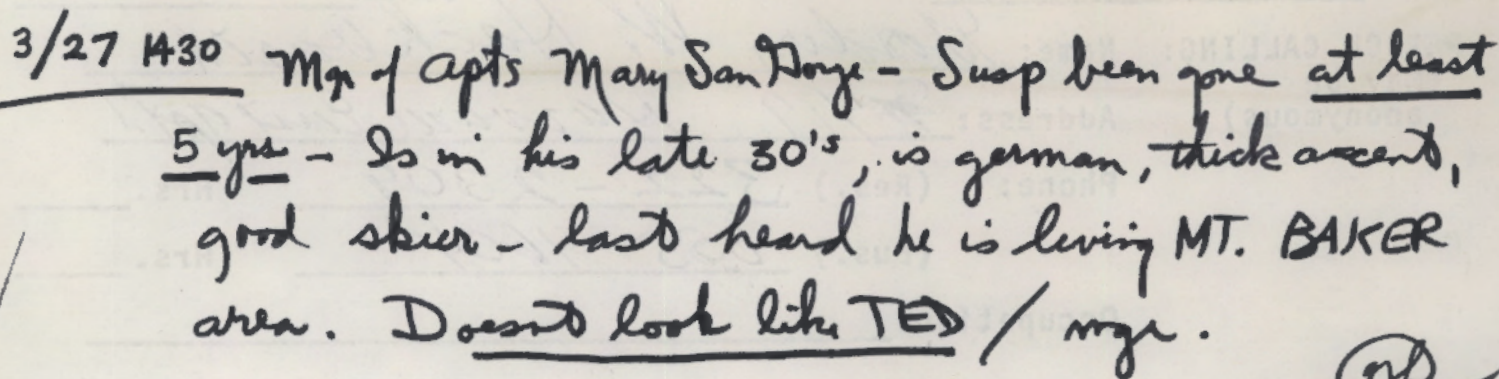 3/27 1430 Mgr of Apts Mary San Gorge - Susp been gone at least
5 yrs - Is in his late 30's, is german, thick accent,
good skier - last heard he is living MT. BAKER
area. Doesnt look like TED / mgr.